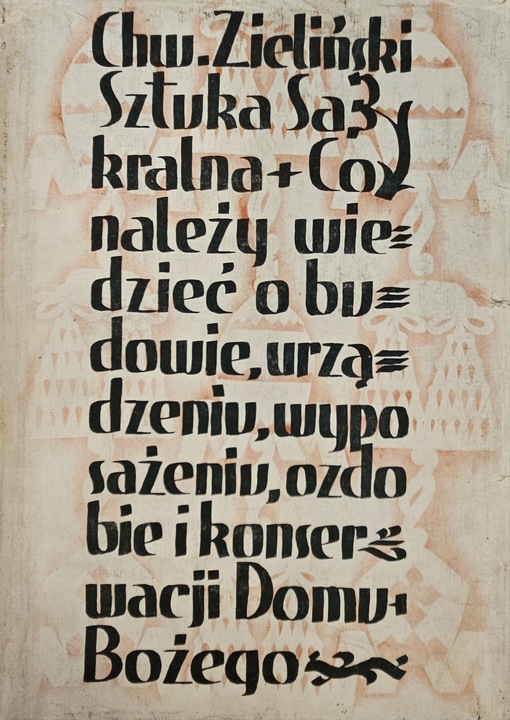 Chw. Zieliński
Sztuka Sa⹀
kralna + Co
należy wie⹀
dzieć o bu⹀
dowie, urzą⹀
dzeniu, wypo
sażeniu, ozdo
bie i konser⹀
wacji Domu +
Bożego